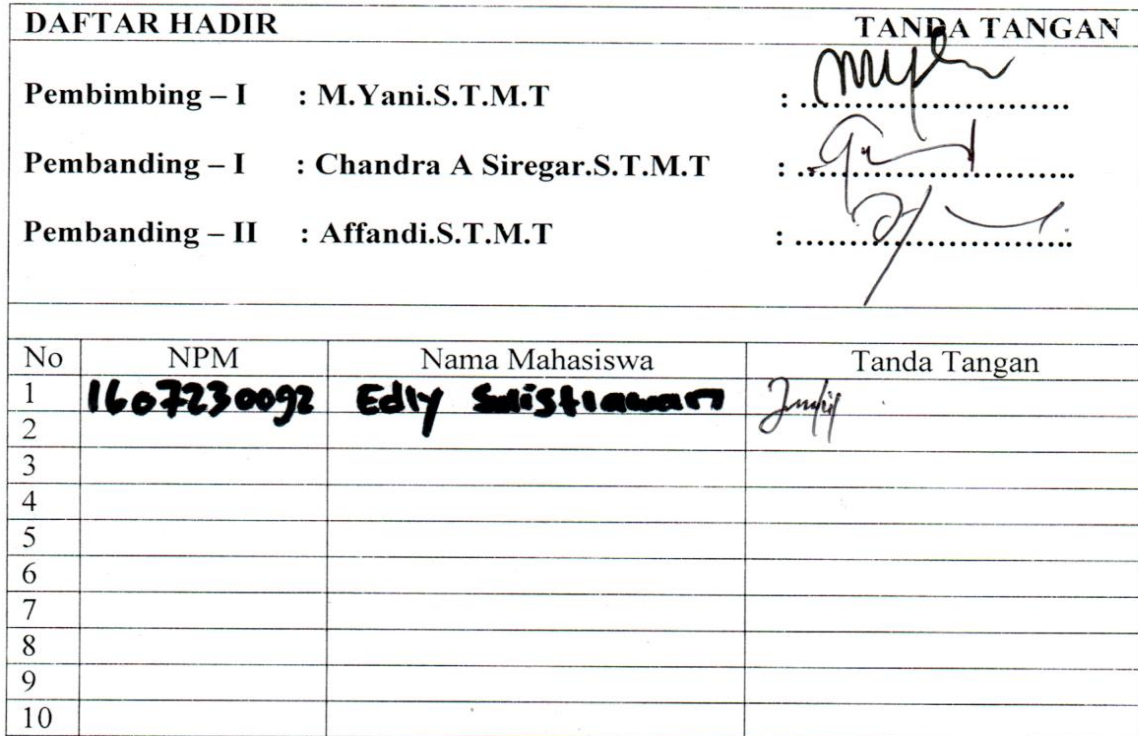 DAFTAR HADIR TANDA TANGAN
Pembimbing – I : M.Yani.S.T.M.T : ..............................
Pembanding – I : Chandra A Siregar.S.T.M.T : ..............................
Pembanding – II : Affandi.S.T.M.T : ..............................
No NPM Nama Mahasiswa Tanda Tangan
1 1607230092 Edly Sulistiawan
2
3
4
5
6
7
8
9
10